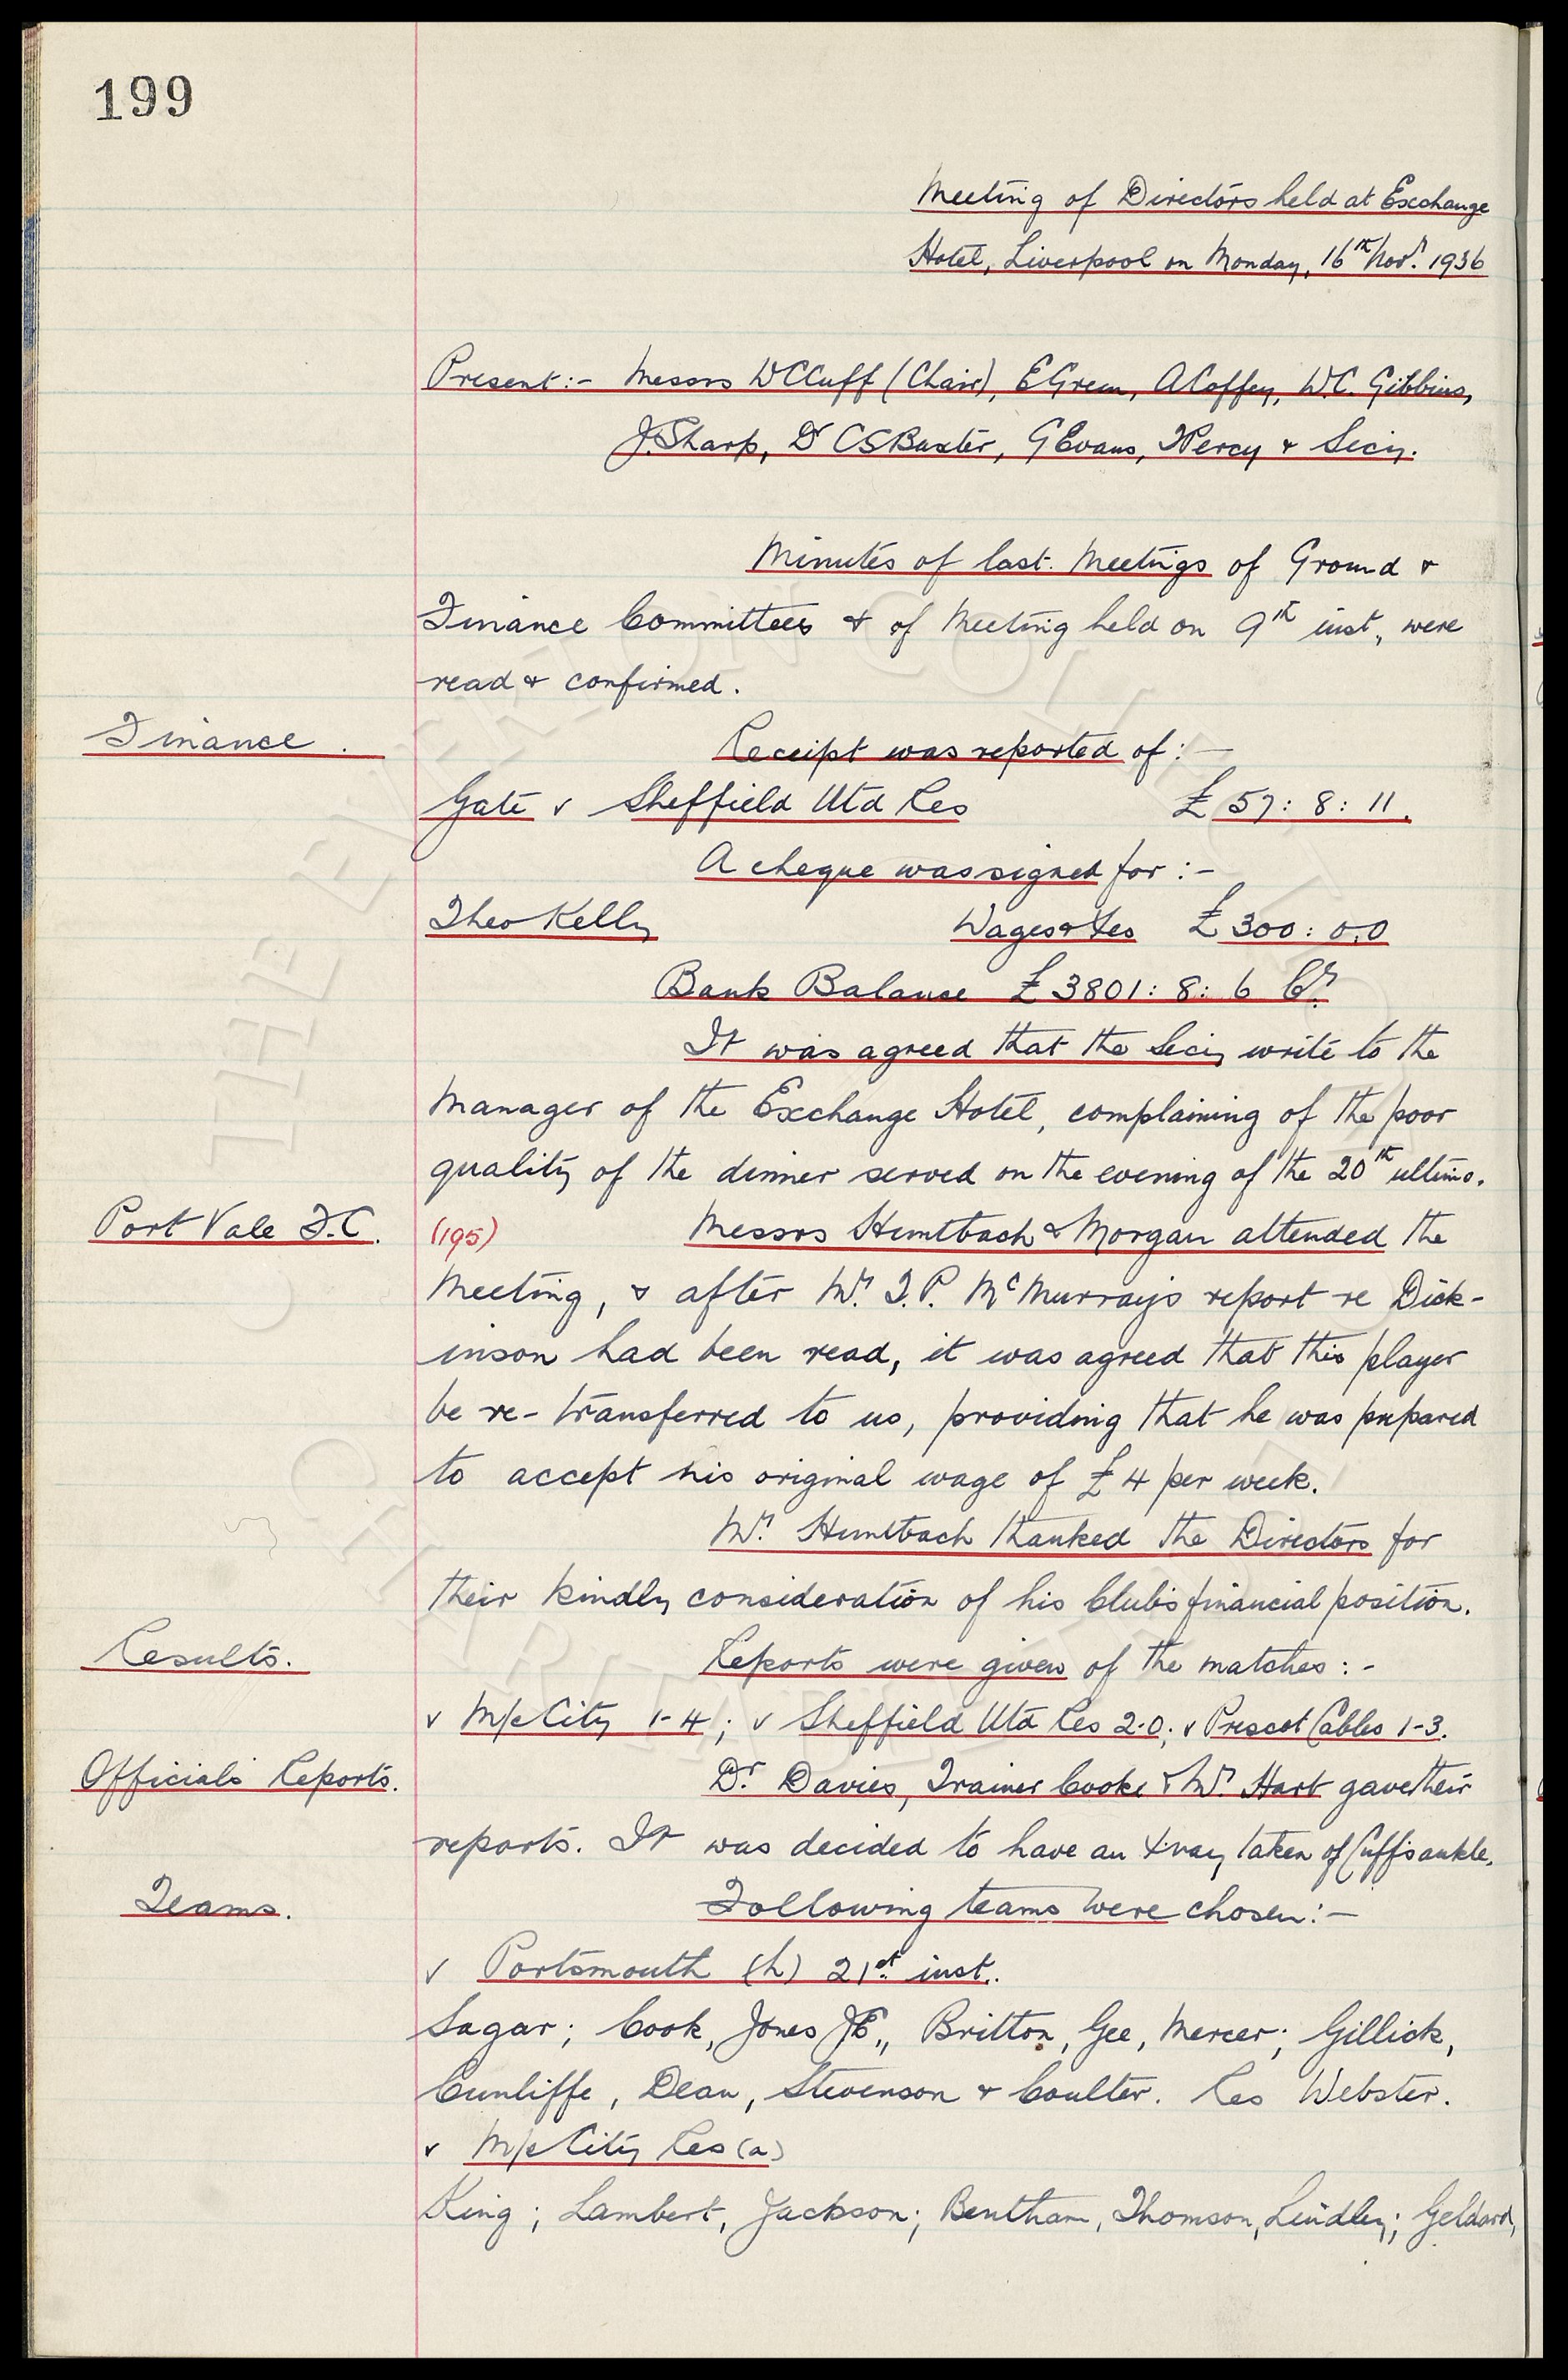 199
Meeting of Directors held at Exchange
Hotel, Liverpool on Monday, 16th Novr. 1936
Present:- Messrs W C Cuff (Chair), E Green, A Coffey, W.C. Gibbins,
J. Sharp, Dr C S Baxter, G Evans, T Percy & Secy.
Minutes of last Meetings of Ground &
Finance Committees & of Meeting held on 9th inst., were
read & confirmed.
Finance.
Receipt was reported of:-
Gate v Sheffield Utd Res £57: 8: 11.
A cheque was signed for:-
Theo Kelly Wages & Fees £300: 0. 0
Bank Balance £3801: 8: 6 Cr.
It was agreed that the Secy write to the
Manager of the Exchange Hotel, complaining of the poor
quality of the dinner served on the evening of the 20th ultimo.
Port Vale F.C. (195) Messrs Humtbach & Morgan attended the
Meeting, & after Mr. T.P. McMurray's report re Dick-
inson had been read, it was agreed that this player
be re-transferred to us, providing that he was prepared
to accept his original wage of £4 per week.
Mr. Humtbach thanked the Directors for
their kindly consideration of his Club's financial position.
Results.
Reports were given of the matches:-
v M/c City 1-4; v Sheffield Utd Res 2-0; v Prescot Cables 1-3.
Officials Reports.
Dr. Davies, Trainer Cooke & Mr. Hart gave their
reports. It was decided to have an X-ray taken of Cuff's ankle.
Teams.
Following teams were chosen:-
v Portsmouth (h) 21st. inst.
Sagar; Cook, Jones J E,, Britton, Gee, Mercer; Gillick,
Cunliffe, Dean, Stevenson & Coulter. Res Webster.
v M/c City Res (a)
King; Lambert, Jackson; Bentham, Thomson, Lindley; Geldard,